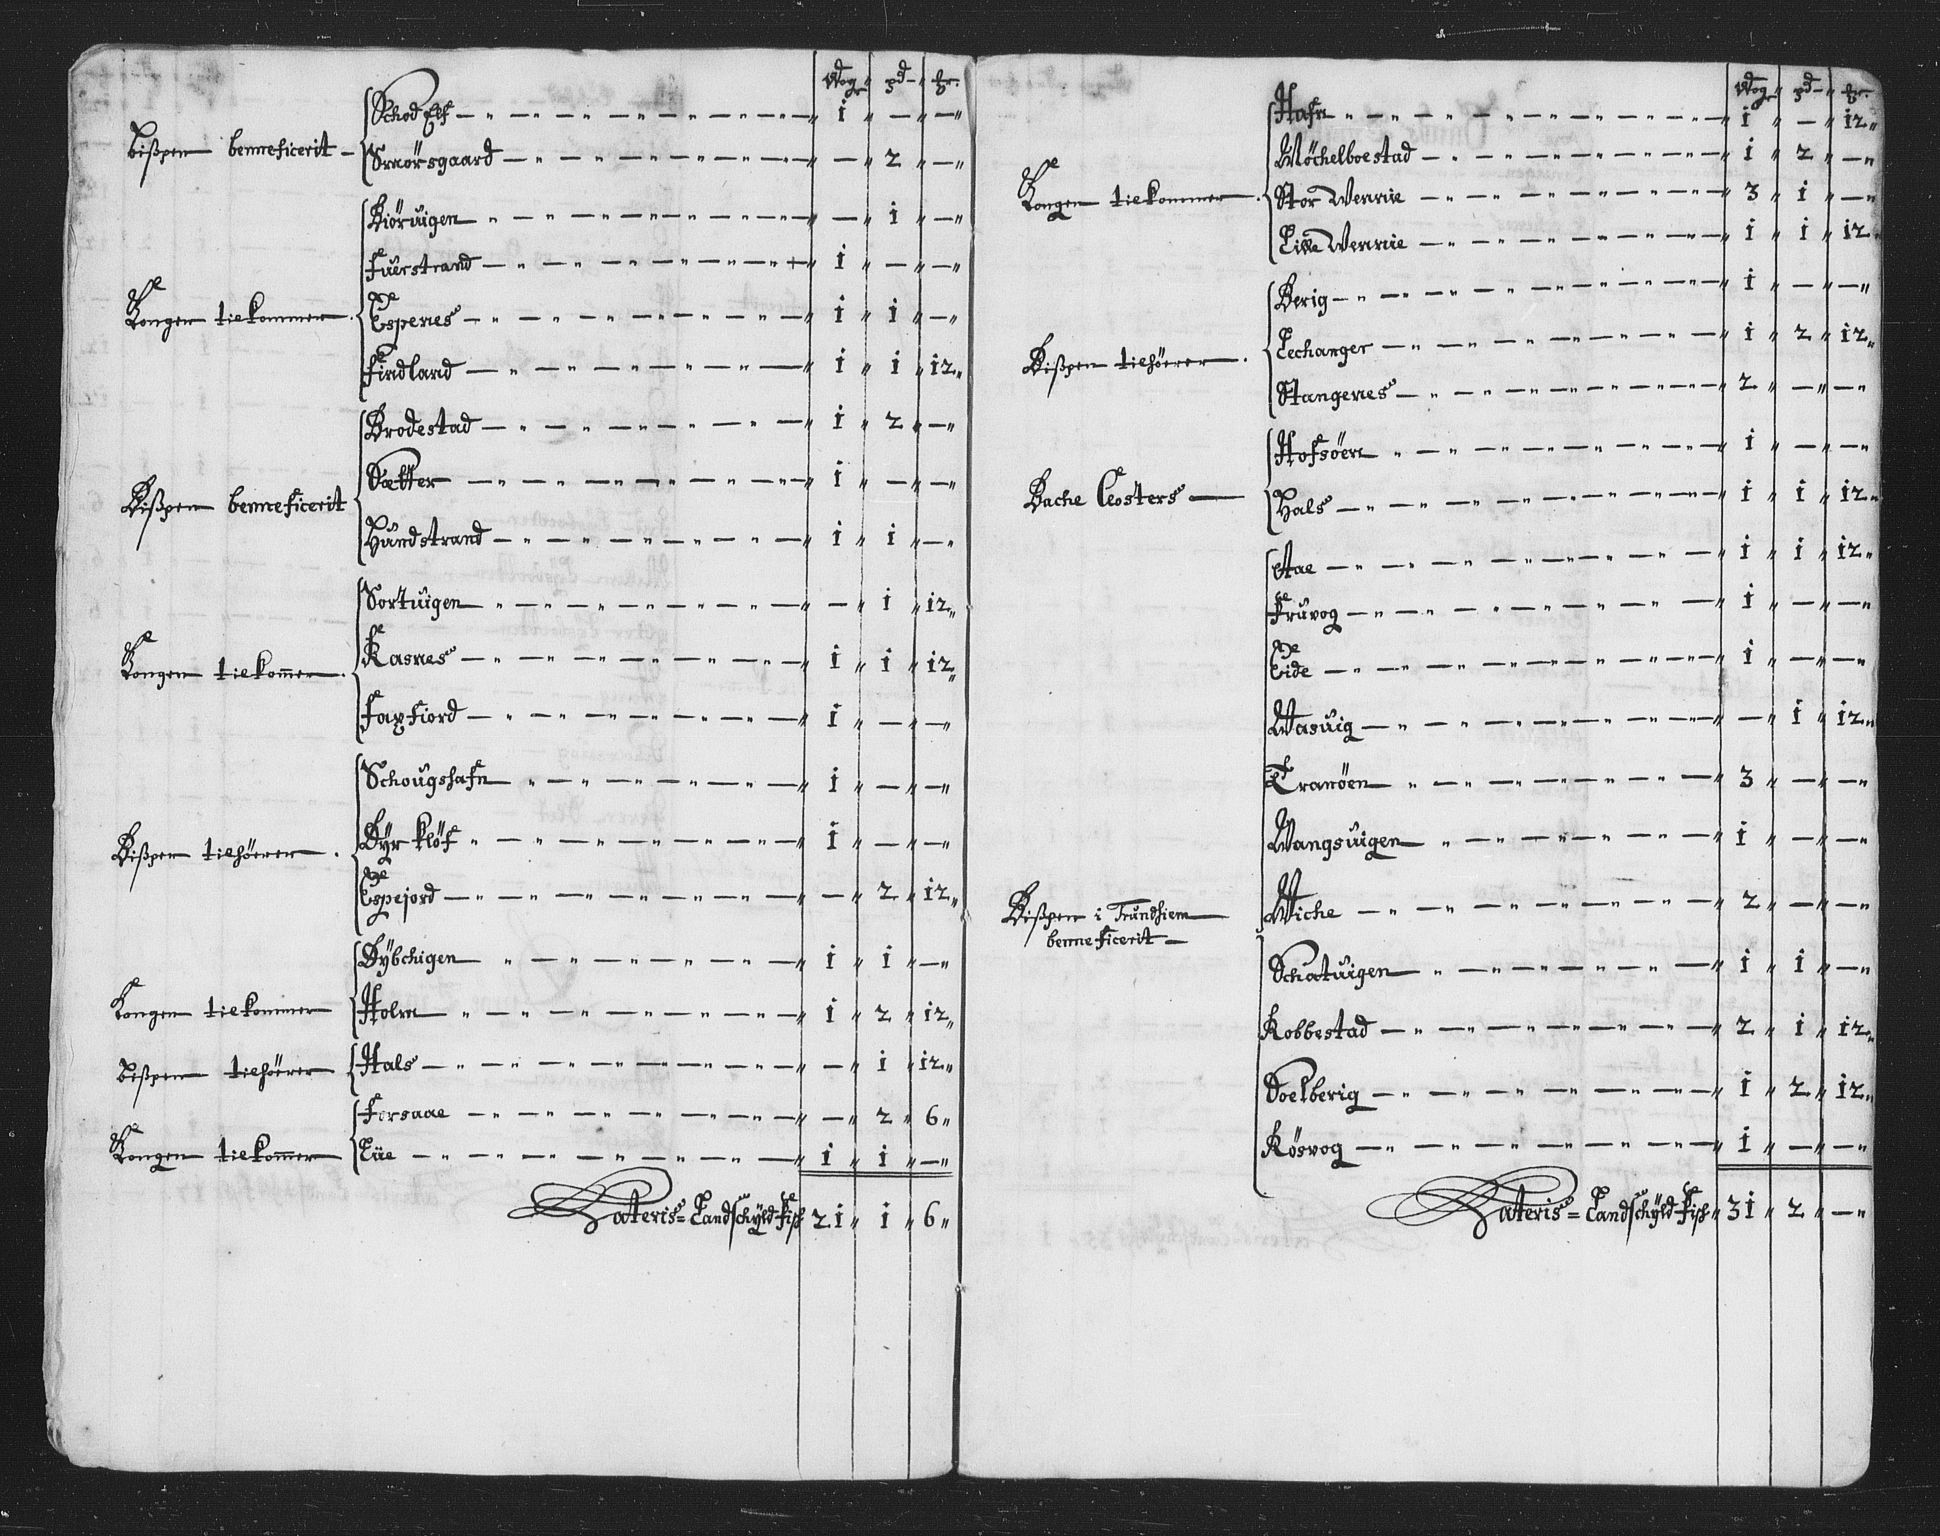 Wog pd tr.
Bißpen benneficerit
Schod Elf — 1 „ — „ — „
Smörsgaard — „ — „ 2 „ — „
Kongen tiekommer
Kiöruigen — „ — „ 1 „ — „
Fuerstrand — 1 „ — „ — „
Espenes — 1 „ 1 „ — „
Findland — 1 „ 1 „ 12 „
Bißpen benneficerit
Brodestad — 1 „ 2 „ — „
Sætter — 1 „ — „ — „
Hundstrand — 1 „ 1 „ — „
Kongen tiekommer
Sortuigen — „ — „ 1 „ 12 „
Kasnes — 1 „ 1 „ 12 „
Faxfiord — 1 „ — „ — „
Bißpen tiehöerer
Schougshafn — 1 „ — „ — „
Dyr Klöf — 1 „ — „ — „
Espejord — „ — „ 2 „ 12 „
Kongen tiekommer
Dybchigen — 1 „ 1 „ — „
Holm — 1 „ 2 „ 12 „
Bißpen tiehöerer
Hals — „ — „ 1 „ 12 „
Kongen tiekommer
Forsaae — „ — „ 2 „ 6 „
Lüe — 1 „ 1 „ — „
Lateris = Landschyld Fisch 21 „ 1 „ 6 „
Wog pd tr.
Kongen tiekommer
Hafn — 1 „ — „ 12 „
Möchelboestad — 1 „ 2 „ — „
Stor Wennie — 3 „ 1 „ — „
Lille Wennie — 1 „ 1 „ 12 „
Bißpen tiehöerer
Berig — 1 „ — „ — „
Lechanger — 1 „ 2 „ 12 „
Stangenes — 2 „ — „ — „
Bache Closters
Hofsöen — 1 „ — „ — „
Hals — 1 „ 1 „ 12 „
Bißpen i Trundhiem
benneficerit
Aae — 1 „ 1 „ 12 „
Fruvog — 1 „ — „ — „
Eide — 1 „ — „ — „
Wasuig — „ — „ 1 „ 12 „
Tranöen — 3 „ — „ — „
Wangsuigen — 1 „ — „ — „
Wiche — 2 „ — „ — „
Schatuigen — 1 „ 1 „ — „
Kobbestad — 2 „ 1 „ 12 „
Doelberig — 1 „ 2 „ 12 „
Kösvog — 1 „ — „ — „
Lateris = Landschyld Fisch „ 31 „ 2 „ — „